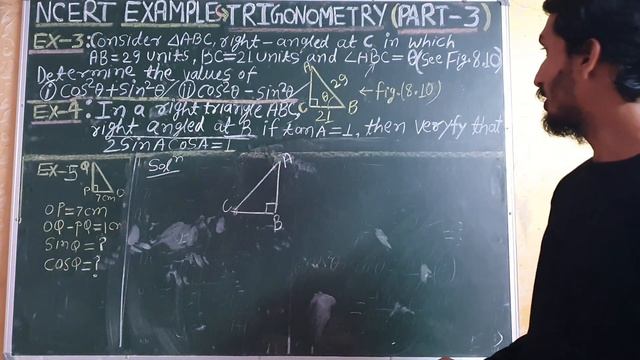 NCERT EXAMPLES TRIGONOMETRY (PART-3)
EX-3: Consider ΔABC, right-angled at C in which
AB = 29 units, BC = 21 units and ∠ABC = θ (See Fig. 8.10)
Determine the values of
(i) cos²θ + sin²θ (ii) cos²θ - sin²θ
A
29
θ
C
B
21
← fig-(8.10)
EX-4: In a right triangle ABC,
right angled at B if tanA = 1, then veryfy that
2SinA CosA = 1
EX-5
Q
P
7cm
O
OP = 7cm
OQ - PQ = 1cm
SinQ = ?
CosQ = ?
Solⁿ
A
C
B